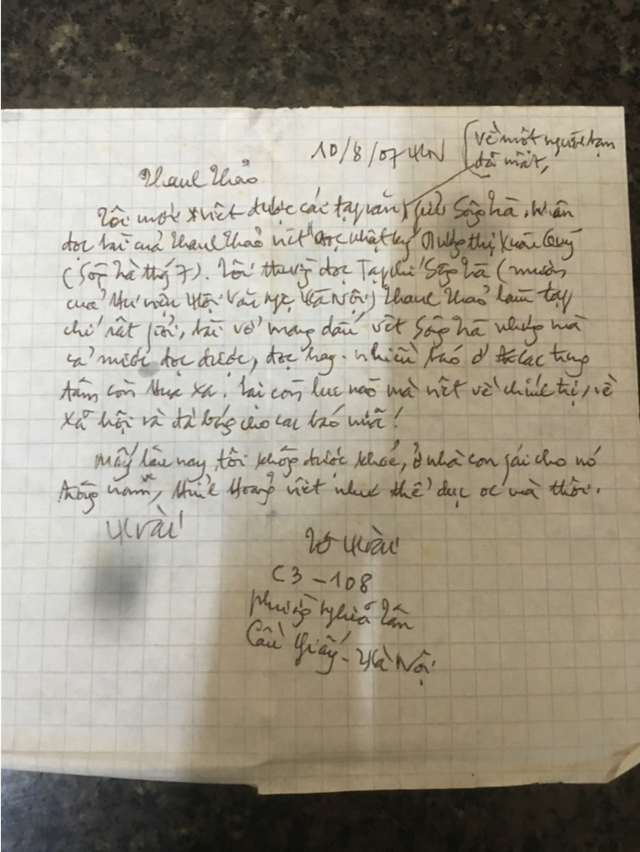 10/8/07 HN
(về một người bạn
đã mất,
Thanh Thảo
Tôi mới viết được cái tạp văn gửi Sông Trà, nhân
đọc bài của Thanh Thảo viết "Đọc nhật ký Dương thị Xuân Quý
(Sông Trà thứ 7). Tôi thường đọc Tạp chí Sông Trà (mượn
của thư viện Hội Văn học, Hà Nội) Thanh Thảo làm tạp
chí rất giỏi, bài vở mang dấu vết Sông Trà nhưng mà
cả nước đọc được, đọc hay. nhiều báo ở các trung
tâm còn thua xa. lại còn lúc nào mà viết về chính trị, về
xã hội và đá bóng cho các báo nữa!
Mấy lâu nay tôi không được khoẻ, ở nhà con gái cho nó
trông nom, thỉnh thoảng viết như thể dục óc mà thôi.
Hoài
Tô Hoài
C3-108
phường nghĩa Tân
Cầu Giấy - Hà Nội